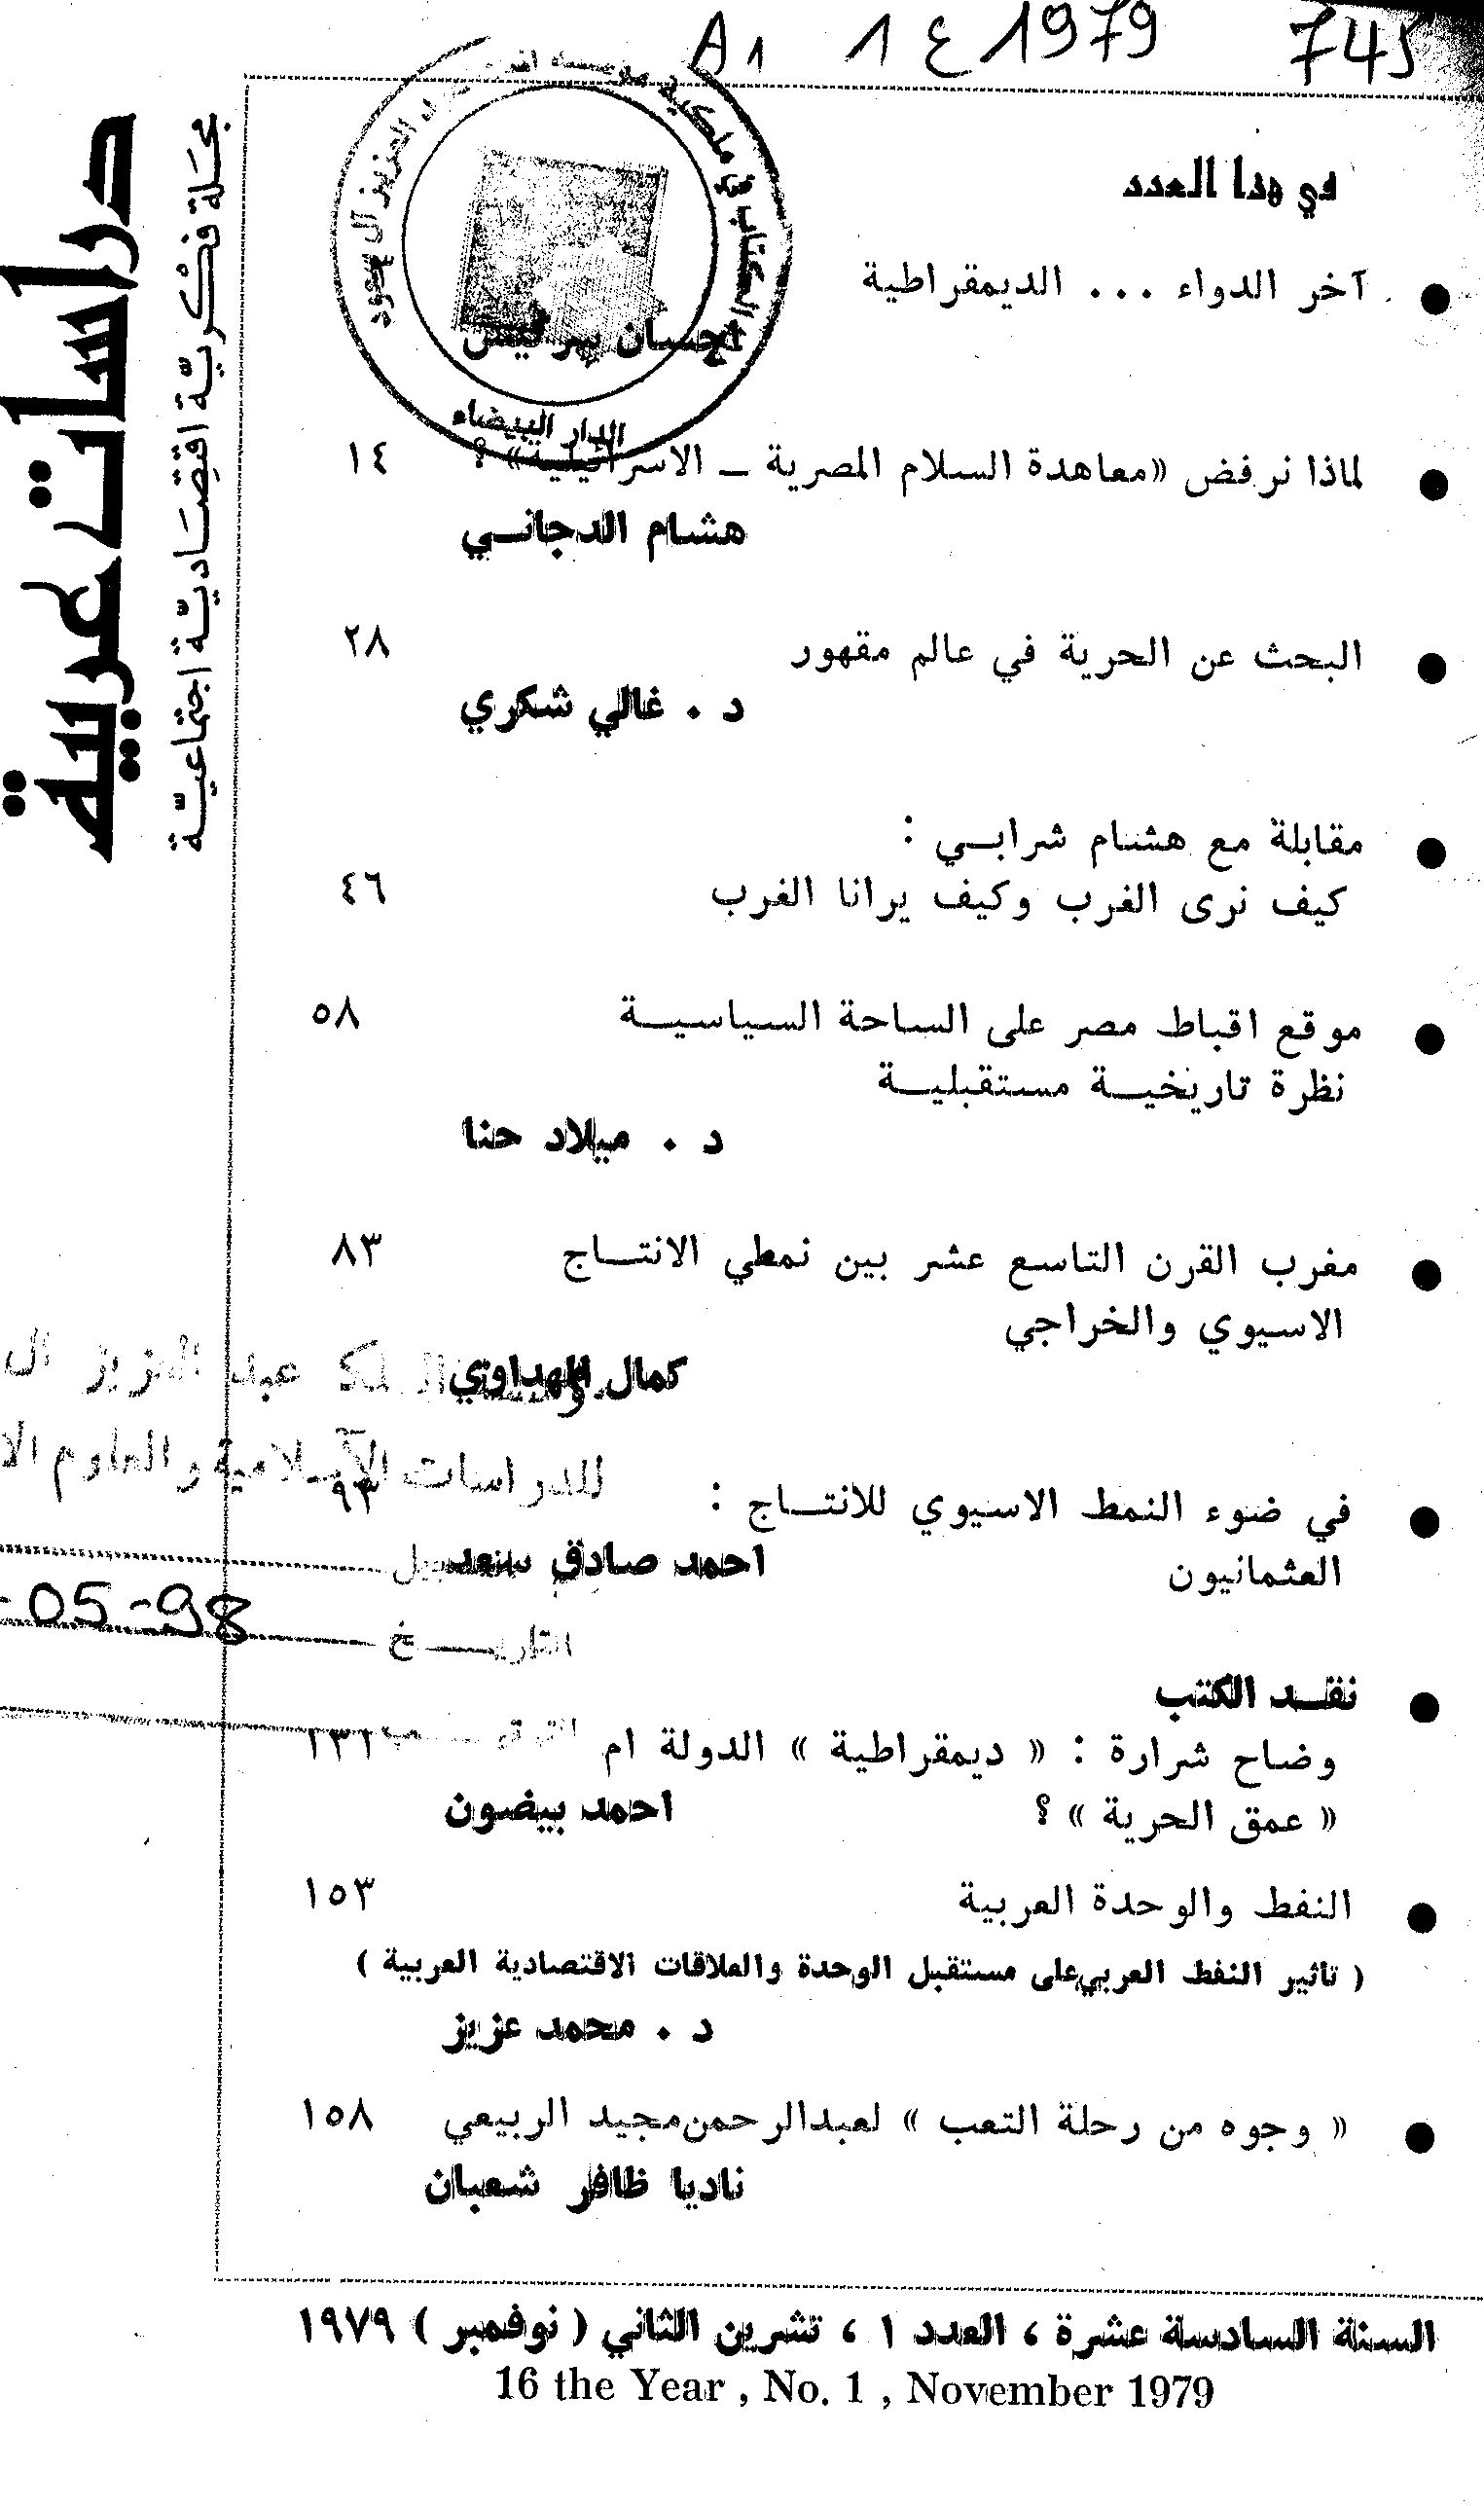 A1 1 ع 1979 745
دراسات عربية
مجلة فكرية اقتصادية اجتماعية
في هذا العدد
آخر الدواء ... الديمقراطية
لماذا نرفض «معاهدة السلام المصرية ــ الاسرائيلية» ؟ ١٤
هشام الدجاني
البحث عن الحرية في عالم مقهور ٢٨
د . غالي شكري
مقابلة مع هشام شرابي :
كيف نرى الغرب وكيف يرانا الغرب ٤٦
موقع اقباط مصر على الساحة السياسية ٥٨
نظرة تاريخية مستقبلية
د . ميلاد حنا
مغرب القرن التاسع عشر بين نمطي الانتاج ٨٣
الاسيوي والخراجي
كمال
عبد العزيز ال
للدراسات الاسلامية والعلوم الا
في ضوء النمط الاسيوي للانتاج : ٩٣
العثمانيون احمد صادق سعد
التاريخ -05-98
نقد الكتب
وضاح شرارة : « ديمقراطية » الدولة ام
« عمق الحرية » ؟ احمد بيضون
النفط والوحدة العربية ١٥٣
( تاثير النفط العربي على مستقبل الوحدة والعلاقات الاقتصادية العربية )
د . محمد عزيز
« وجوه من رحلة التعب » لعبدالرحمن مجيد الربيعي ١٥٨
ناديا ظافر شعبان
الدار البيضاء
السنة السادسة عشرة ، العدد ١ ، تشرين الثاني ( نوفمبر ) ١٩٧٩
16 the Year , No. 1 , November 1979